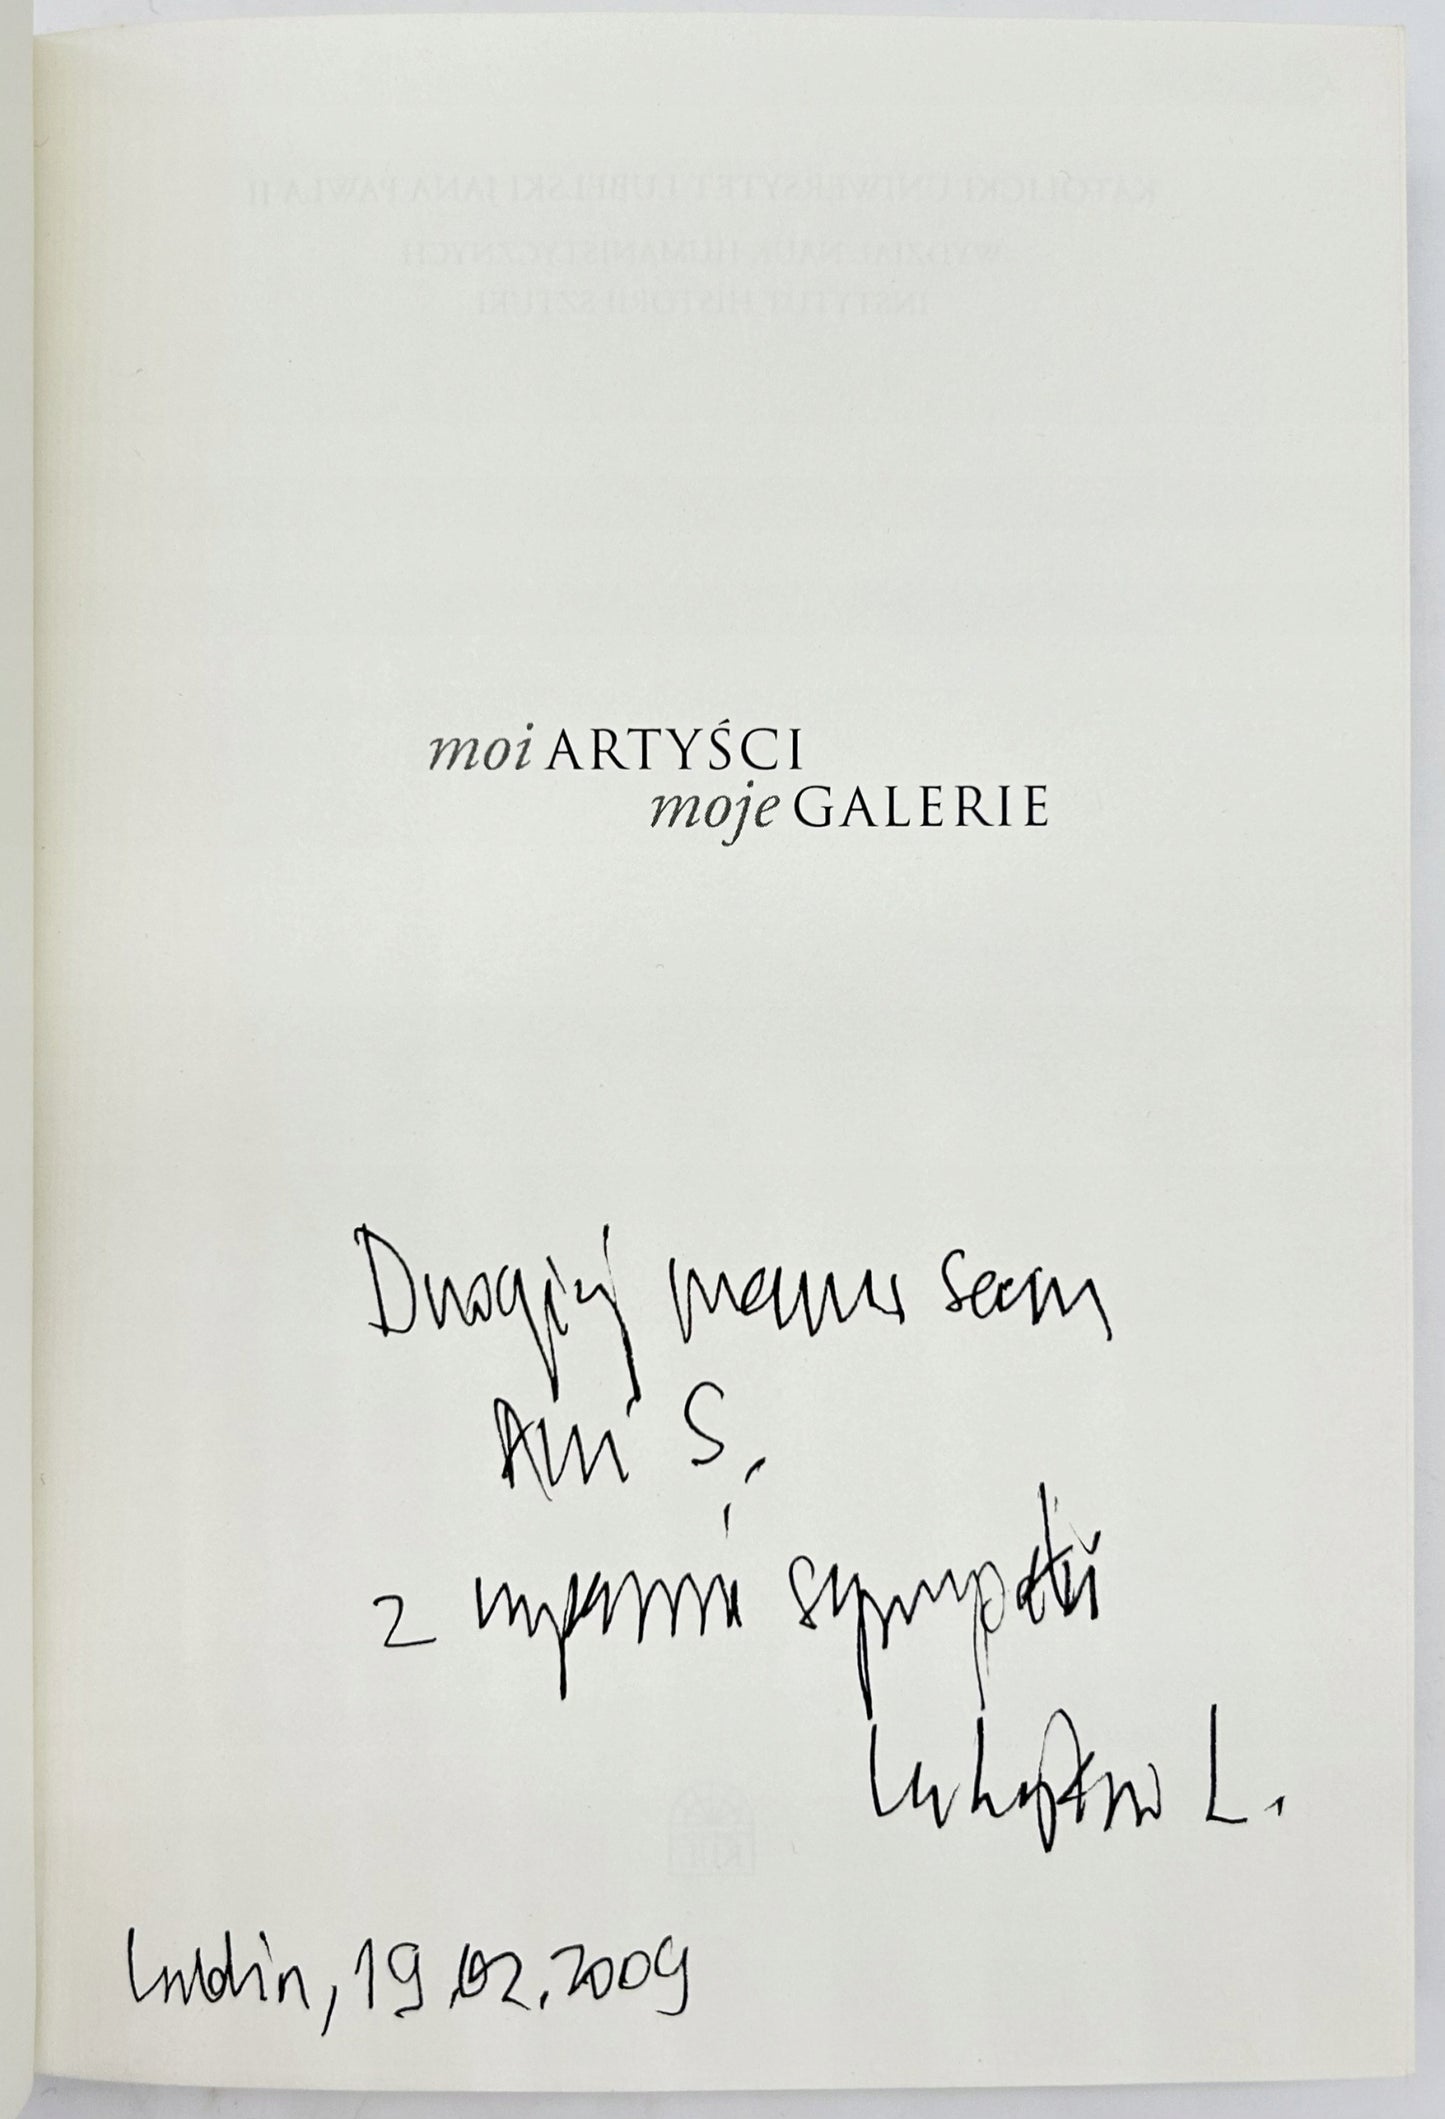 KATOLICKI UNIWERSYTET LUBELSKI JANA PAWŁA II
WYDZIAŁ NAUK HUMANISTYCZNYCH
INSTYTUT HISTORII SZTUKI
moi ARTYŚCI
moje GALERIE
Drogiej
Ani S.
z wyrazami sympatii
L.
Lublin, 19.02.2009